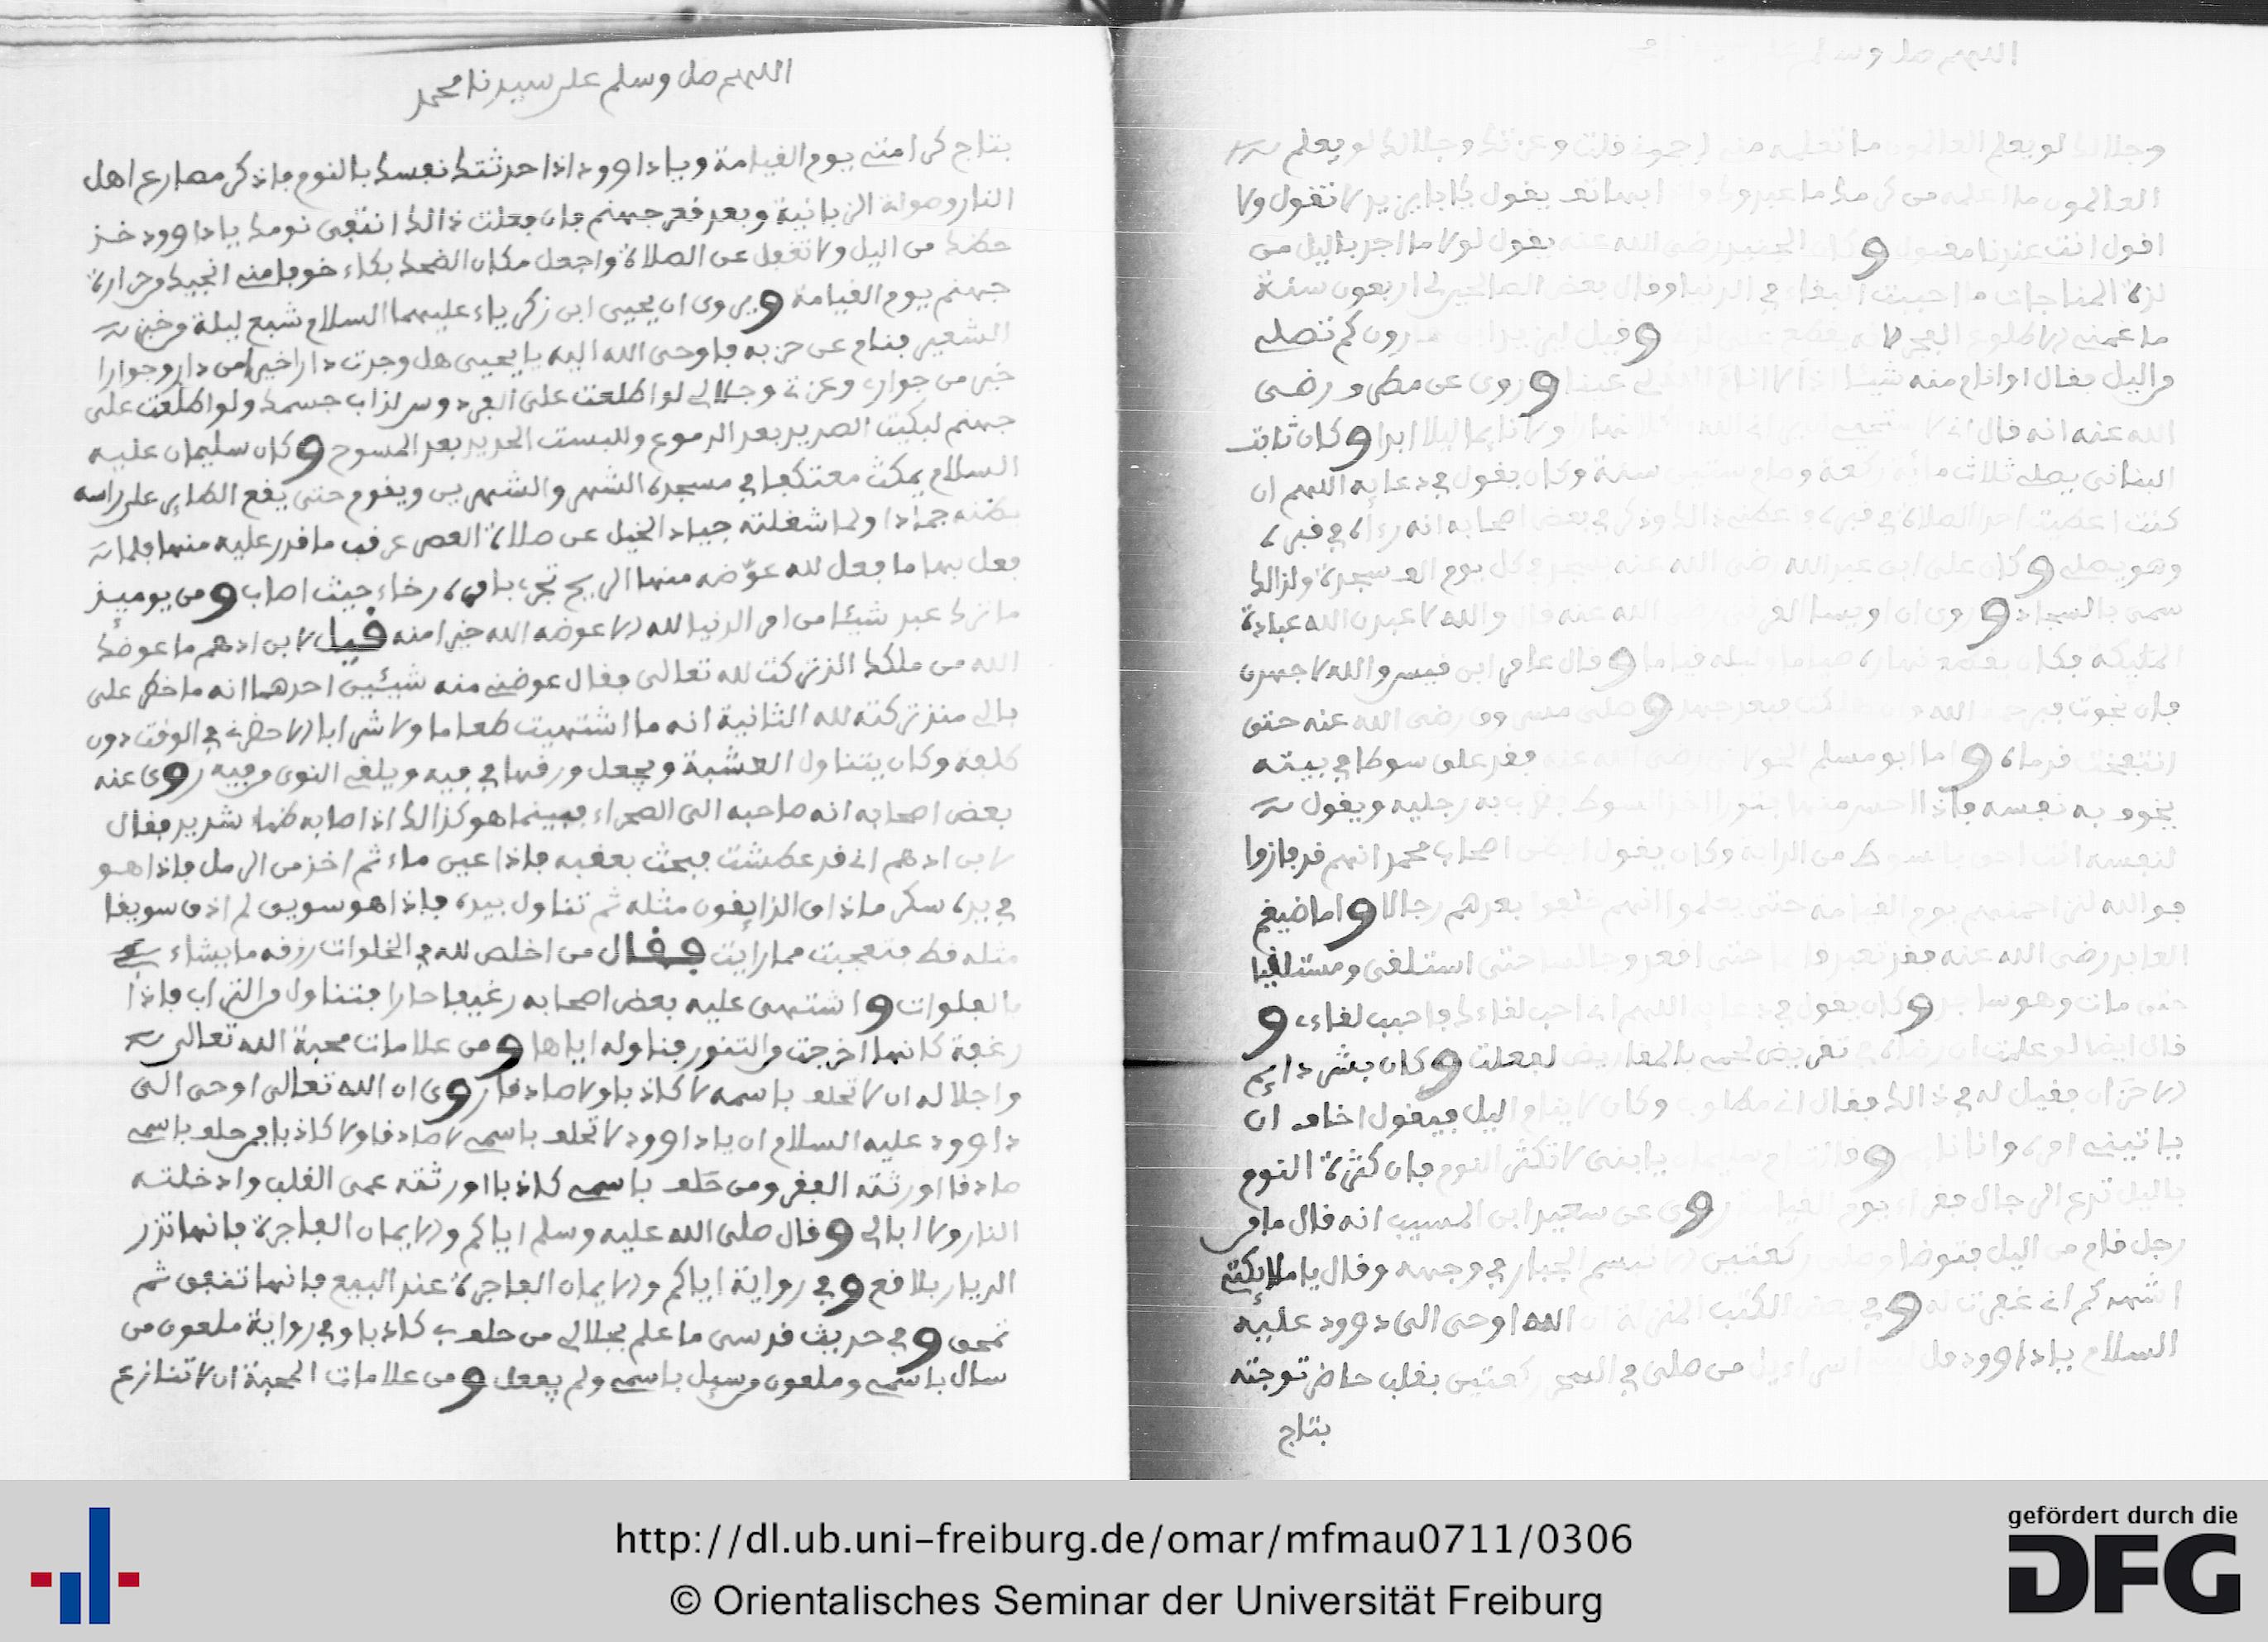 اللهم صل وسلم
وجلالك لو يعلم العالمون ما تعلمه وعزتك وجلالك لو يعلم
العالمون ما اعلمه من كرمك ما عبدوك يقول يا بايزيد لا تقول ولا
اقول انت عندنا مقبول وكان الجنيد رضى الله عنه يقول لولا ما اجد باليل من
لذة المناجات ما احببت البقاء في الدنيا وقال بعض الصالحين لي اربعون سنة
ما غمني الا طلوع الفجر وقيل كم تصلي
من اليل فقال اوانام منه شيئا وروى عن مطر و رضى
الله عنه انه قال ولا نايما ليلا ابدا وكان ثابت
البناني يصلي ثلاث مائه ركعة سنة وكان يقول في دعايه اللهم ان
كنت اعطيت احدا الصلاة في قبره فاعطني ذالك وذكر لي بعض اصحابه انه رءاه في قبره
وهو يصلي وكان على ابن عبد الله رضى الله عنه يسجد وكل يوم الف سجدة ولذالك
سمى بالسجاد وروى ان اويسا الله عنه قال والله لاعبدن الله عبادة
الملئكة فكان نهاره صياما وليله قياما وقال عامر ابن قيس والله لاجهدن
فان نجوت فبرحمة الله وصلى مسروق رضى الله عنه حتى
انتفخت قدماه واما ابو مسلم الخولاني رضى الله عنه فقد على سوطا في بيته
يخوف به نفسه فاذا احس يضرب به رجليه ويقول
لنفسه السوط من الدابة وكان يقول ايظن اصحاب محمد انهم قد فازوا
فوالله لنزاحمنهم يوم القيامة حتى يعلموا انهم خلفوا بعدهم رجالا واما ضيغم
العابد رضى الله عنه فقد تعبد قايما حتى اقعد وجالسا حتى استلقى ومستلقيا
حتى مات وهو ساجد وكان يقول في دعايه اللهم اني احب لقاءك فاحبب لقاءى و
قال ايضا لو علمت ان رضاه في تقريض لحمي بالمقاريض لفعلت وكان بشر دايم
الاحزان فقيل له في ذالك فقال اني مطلوب وكان لا ينام اليل فيقول اخاف ان
ياتيني امره وانا نايم يا بنى لا تكثر النوم فان كثرة النوم
باليل تدع الرجال فقراء يوم القيامة روى عن سعيد ابن المسيب انه قال ما من
رجل قام من اليل فتوضا وصلى ركعتين الا تبسم الجبار في وجهه وقال يا ملايكتي
اشهدكم اني غفرت له وفي بعض الكتب المنزلة ان الله اوحى الى داوود عليه
السلام يا داوود قل لبني اسراءيل من صلى في السحر ركعتين بقلب حاضر توجته
بتاج
اللهم صل وسلم على سيدنا محمد
بتاج كرامتي يوم القيامة ويا داوود اذا حدثتك نفسك بالنوم فاذكر مصارع اهل
النار وصولة الزبانية وبعد قعر جهنم فان فعلت ذالك انتفى نومك يا داوود خذ
حظك من اليل ولا تغفل عن الصلاة واجعل مكان الضحك بكاء خوفا مني انجيك من حرارة
جهنم يوم القيامة ويروى ان يحيى ابن زكرياء عليهما السلام شبع ليلة من خبز
الشعير فنام عن حزبه فاوحى الله اليه يا يحيى هل وجدت دارا خيرا من دار وجوارا
خير من جواره وعزتي وجلالي لو اطلعت على الفردوس لذاب جسمك ولو اطلعت على
جهنم لبكيت الصديد بعد الدموع وللبست الحديد بعد المسوح وكان سليمان عليه
السلام يمكث معتكفا في مسجده الشهر والشهرين ويقوم حتى يقع الطاير على راسه
يظنه جمادا ولما شغلته جياد الخيل عن صلاة العصر عرقب ما قدر عليه منها فلما
فعل بها ما فعل لله عوّضه منها الريح تجرى بامره رخاء حيث اصاب ومن يوميذ
ما ترك عبد شيئا من امر الدنيا لله الا عوضه الله خيرا منه قيل لابن ادهم ما عوضك
الله من ملكك الذ تركت لله تعالى فقال عوضني منه شيئين احدهما انه ما خطر على
بالي منذ تركته لله الثانية انه ما اشتهيت طعاما ولا شرابا الا حضرني في الوقت دون
كلفة وكان يتناول العشبة ويجعل ورقها في فيه ويلقى النوى من فيه روى عنه
بعض اصحابه انه صاحبه الى الصحراء فبينما هو كذالك اذا اصابه ظماء شديد فقال
لابن ادهم اني قد عطشت فبحث بعقبه فاذا عين ماء ثم اخذ من الرمل فاذا هو
في يده سكر ما ذاق الذايقون مثله ثم تناول بيده فاذا هو سويق لم اذق سويقا
مثله قط فتعجبت مما رايت وقال من اخلص لله في الخلوات رزقه ما يشاء
بالفلوات واشتهى عليه بعض اصحابه رغيفا حارا فتناول من التراب فاذا
رغفة كانها اخرجت من التنور فناوله اياها ومن علامات محبة الله تعالى
واجلاله ان لا تحلف باسمه لا كاذبا ولا صادقا روى ان الله تعالى اوحى الى
داوود عليه السلام ان يا داوود لا تحلف باسمي لا صادقا ولا كاذبا فمن حلف باسمي
صادقا اورثته الفقر ومن حلف باسمي كاذبا اورثته عمى القلب وادخلته
النار ولا ابالي وقال صلى الله عليه وسلم اياكم والايمان الفاجرة فانها تذر
الديار بلاقع وفي رواية اياكم والايمان الفاجرة عند البيع فانها تنفق ثم
تمحق وفي حديث قدسى ما علم بجلالي من حلف ب كاذبا وفي رواية ملعون من
سال باسمي وملعون من سيل باسمي ولم يفعل ومن علامات المحبة ان لا تنازع
http://dl.ub.uni-freiburg.de/omar/mfmau0711/0306
© Orientalisches Seminar der Universität Freiburg
gefördert durch die
DFG